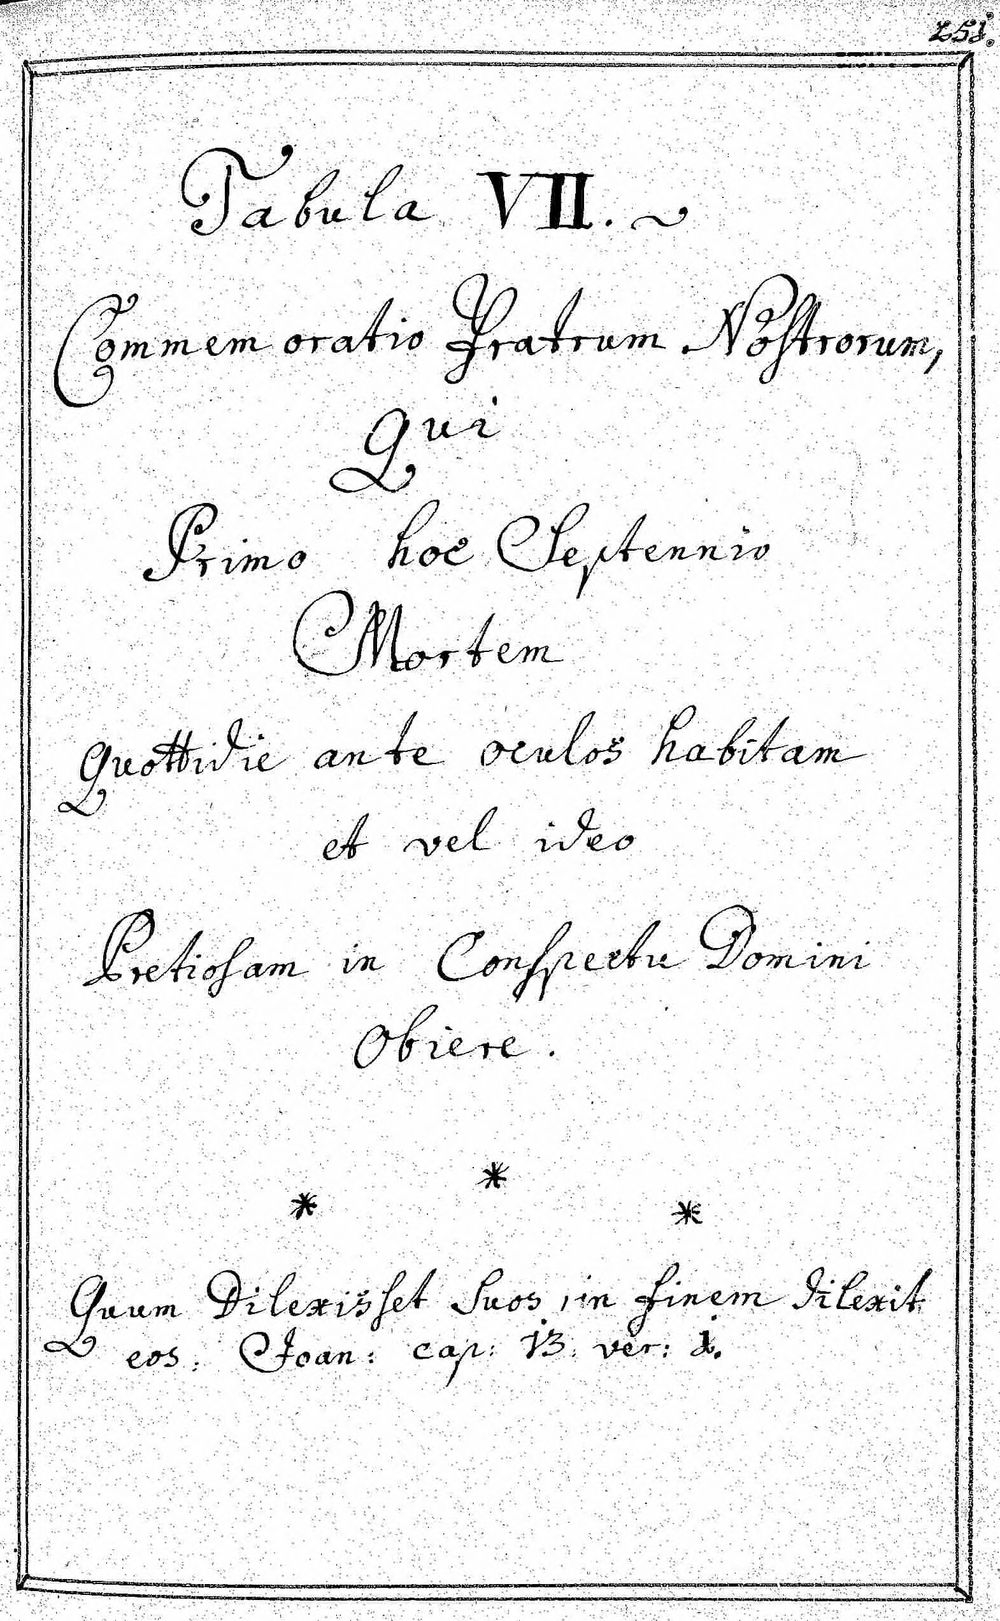 251.
Tabula VII.
Commemoratio Fratrum Nostrorum,
Qui
Primo hoc Septennio
Mortem
Quottidie ante oculos habitam
et vel ideo
Pretiosam in Conspectu Domini
Obiere.
* * *
Quum Dilexisset Suos, in finem dilexit
eos. Joan: cap: 13. ver: 1.